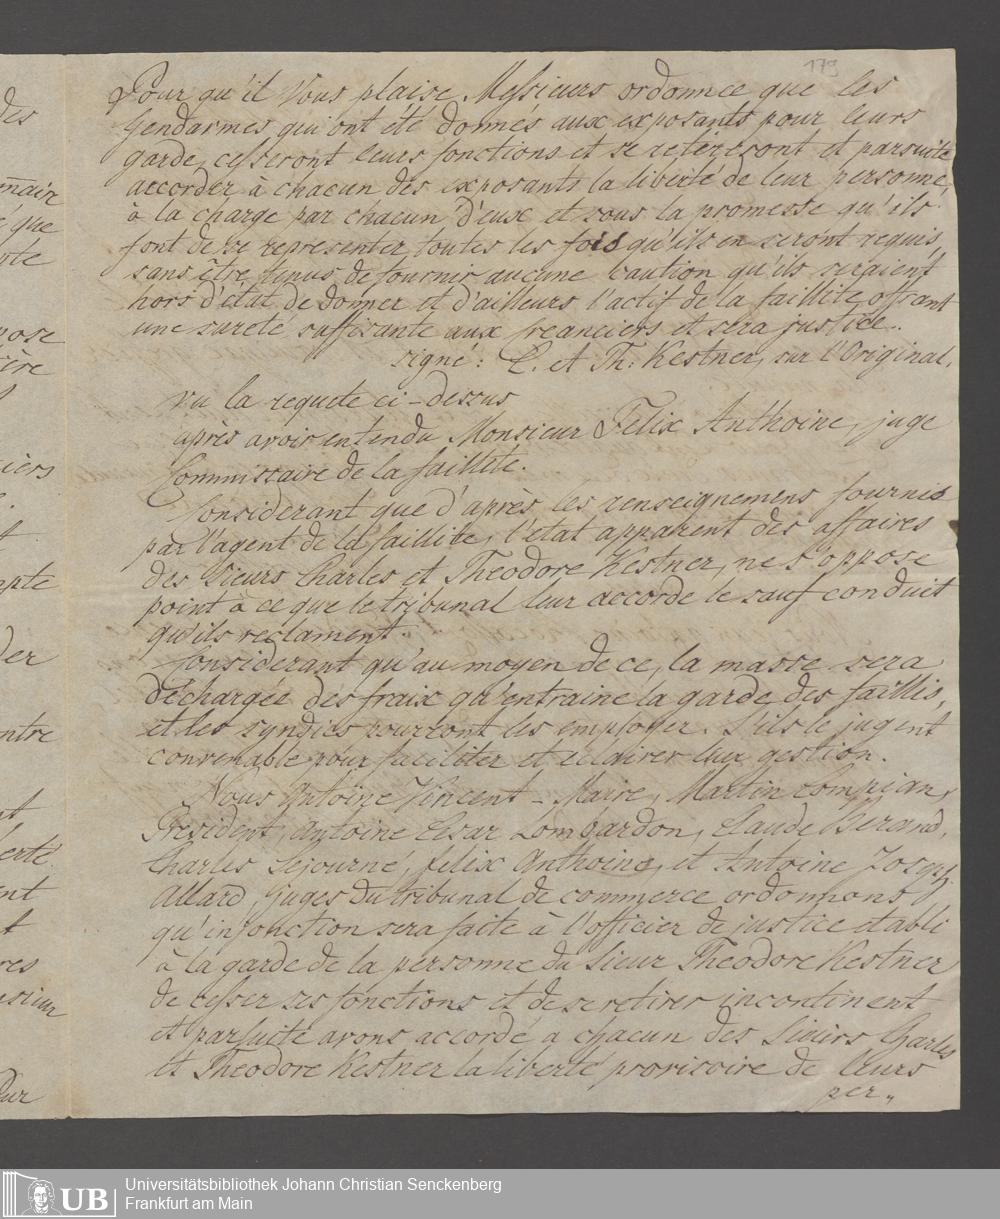 179
Pour qu'il Vous plaise Messieurs ordonnee que les
Gendarmes, qui ont été donnés aux exposants pour leurs
garde, cesseront leurs fonctions et se retireront et parsuite
accorder à chacun des exposants la liberté de leur personne,
à la charge par chacun d'eux et sous la promesse qu'ils
font de se representer toutes les fois qu'ils en seront requis,
sans être tenus de fournir aucune caution qu'ils seraient
hors d'état de donner et d'ailleurs l'actif de la faillite offrant
une sureté suffisante aux Creanciers et sera justice.
signé: C. et Th: Kestner, sur l'Original,
Vu la requete ci-dessus
après avoir entendu Monsieur Felix Anthoine, juge
Commissaire de la faillite.
Considerant que d'après les renseignemens fournis
par l'agent de la faillite, l'état apparent des affaires
des Sieurs Charles et Theodore Kestner, ne s'oppose
point à ce que le tribunal leur accorde le sauf conduit
qu'ils reclament.
Considerant qu'au moyen de ce, la masse sera
déchargée des fraix qu'entraine la garde des faillis,
et les syndics pourront les employer. S'ils le jugent
convenable pour faciliter et eclairer leur gestion.
Nous Antoine Vincent - Maire, Martin Compian,
President, Antoine Cesar Lombardon, Claude Berard,
Charles Sejourné, felix Anthoine, et Antoine Joseph
Allard, Juges du tribunal de commerce ordonnons
qu'injonction sera faite à l'officier de justice etabli
à la garde de la personne du Sieur Theodore Kestner
de cesser ses fonctions et de se retirer incontinent
et parsuite avons accordé a chacun des Sieurs Charles
et Theodore Kestner la liberté provisoire de leurs
per„
des
que
pose
iers
mpte
der
ntre
erté
ent
res
UB
Universitätsbibliothek Johann Christian Senckenberg
Frankfurt am Main